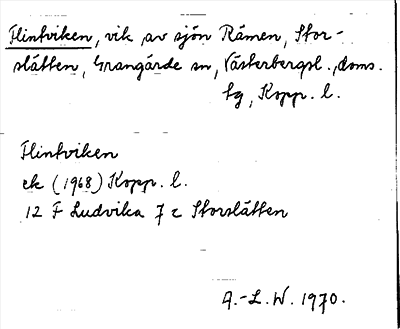 Flintviken, vik av sjön Rämen, Stor-
slätten, Grangärde sn, Västerbergsl., doms.
tg, Kopp. l.
Flintviken
ek (1968) Kopp. l.
12 F Ludvika 7 c Storslätten
A.-L. W. 1970.